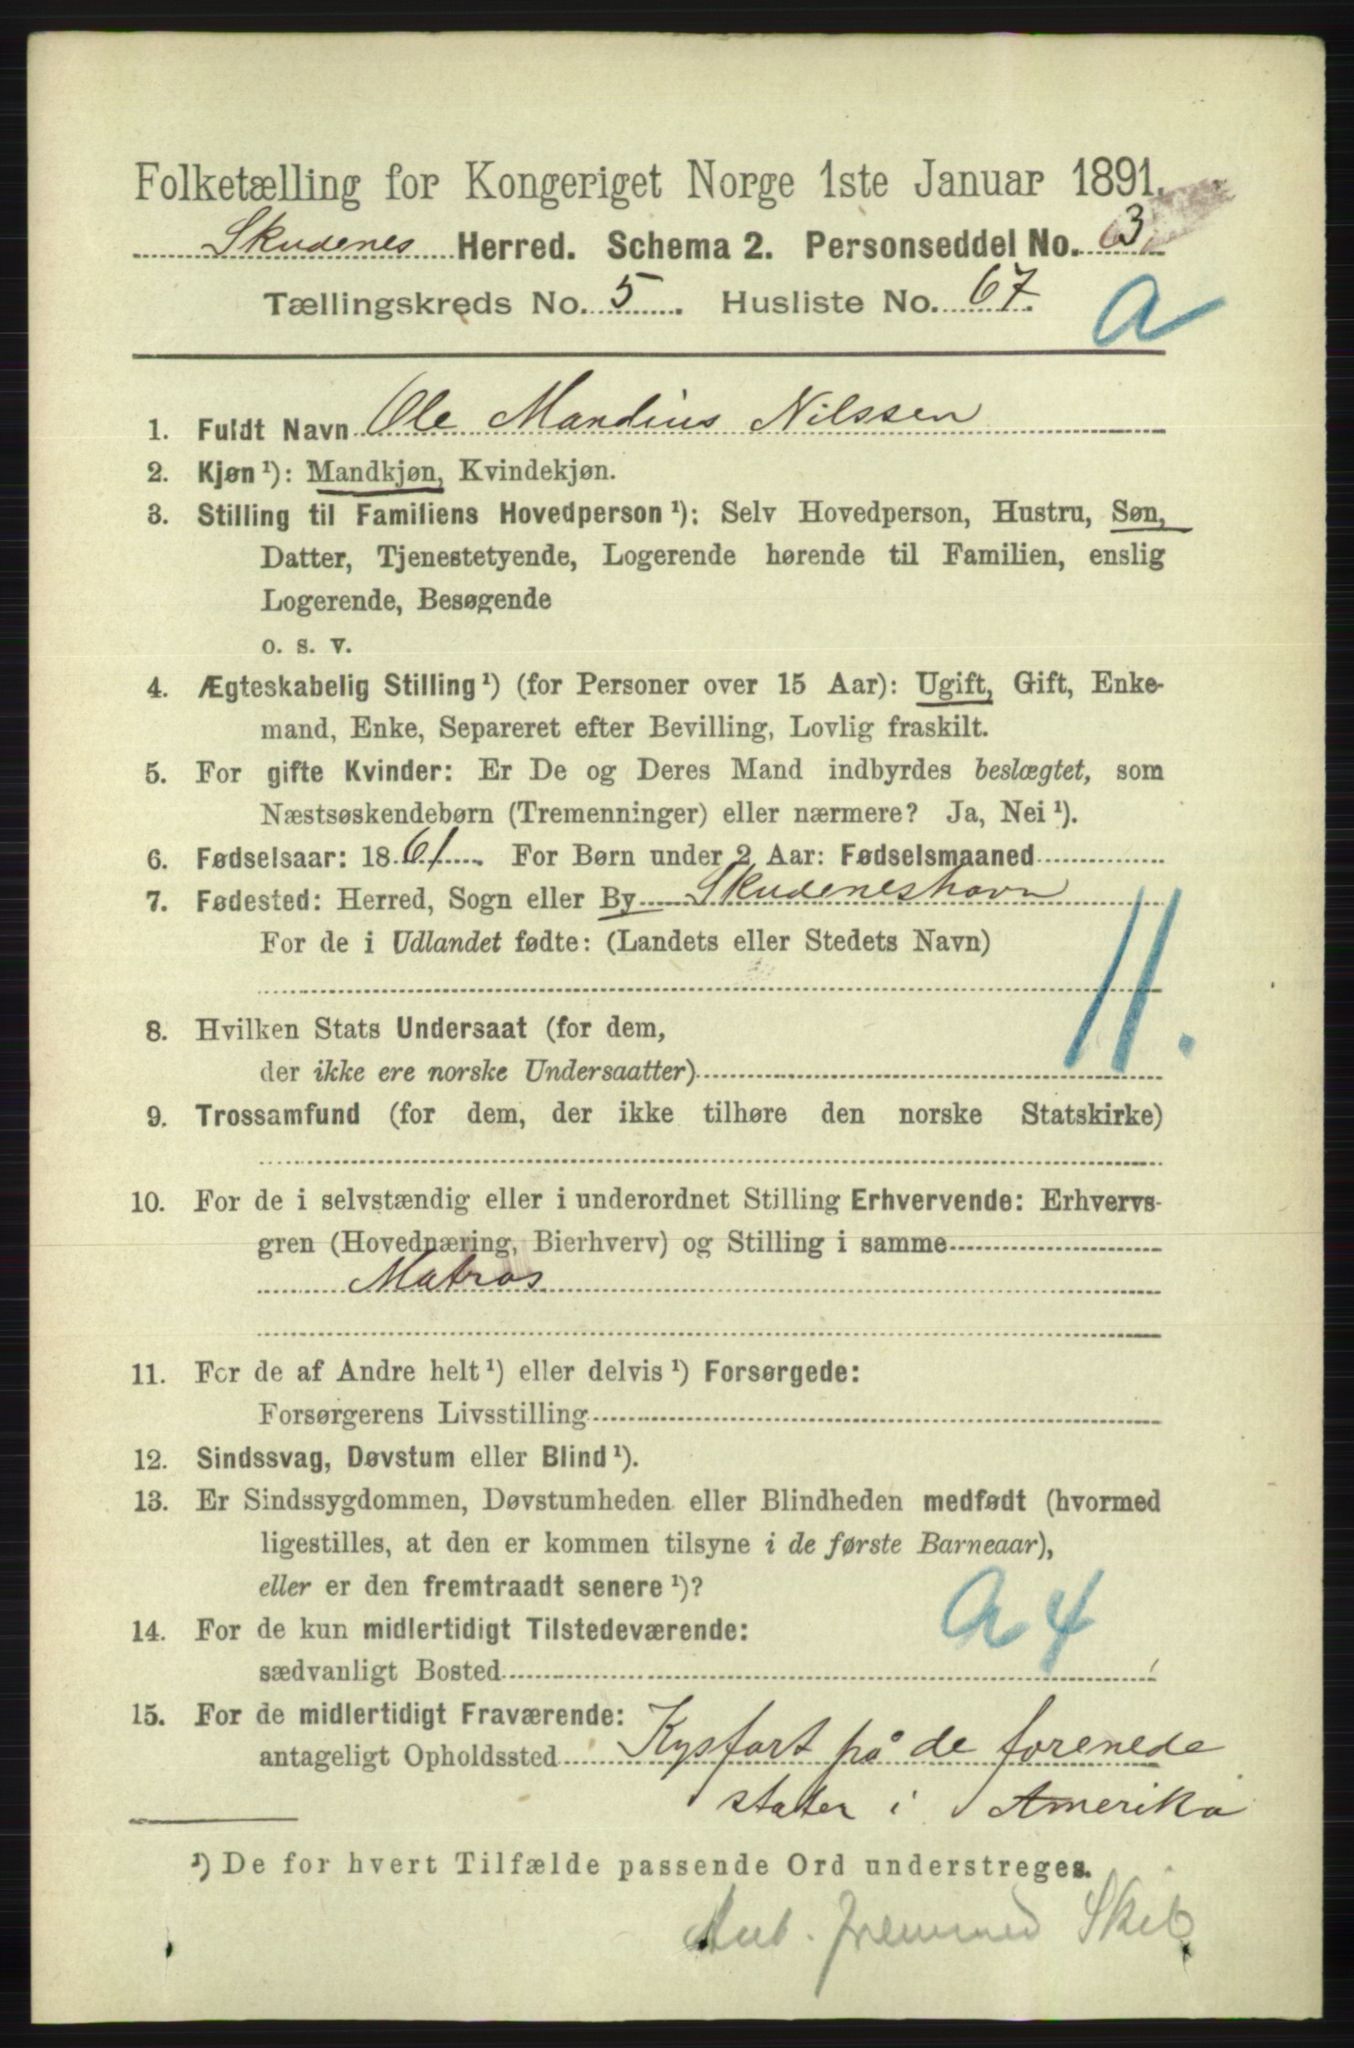 Folketælling for Kongeriget Norge 1ste Januar 1891.
Skudenes Herred. Schema 2. Personseddel No. 3
Tællingskreds No. 5. Husliste No. 67.
a
1. Fuldt Navn Ole Mandius Nilssen
2. Kjøn ¹): Mandkjøn, Kvindekjøn.
3. Stilling til Familiens Hovedperson ¹): Selv Hovedperson, Hustru, Søn,
Datter, Tjenestetyende, Logerende hørende til Familien, enslig
Logerende, Besøgende
o. s. v.
4. Ægteskabelig Stilling ¹) (for Personer over 15 Aar): Ugift, Gift, Enke-
mand, Enke, Separeret efter Bevilling, Lovlig fraskilt.
5. For gifte Kvinder: Er De og Deres Mand indbyrdes beslægtet, som
Næstsøskendebørn (Tremenninger) eller nærmere? Ja, Nei ¹).
6. Fødselsaar: 1861. For Børn under 2 Aar: Fødselsmaaned
7. Fødested: Herred, Sogn eller By Skudeneshavn
For de i Udlandet fødte: (Landets eller Stedets Navn)
11.
8. Hvilken Stats Undersaat (for dem,
der ikke ere norske Undersaatter)
9. Trossamfund (for dem, der ikke tilhøre den norske Statskirke)
10. For de i selvstændig eller i underordnet Stilling Erhvervende: Erhvervs-
gren (Hovednæring, Bierhverv) og Stilling i samme
Matros
11. For de af Andre helt ¹) eller delvis ¹) Forsørgede:
Forsørgerens Livsstilling
12. Sindssvag, Døvstum eller Blind ¹).
13. Er Sindssygdommen, Døvstumheden eller Blindheden medfødt (hvormed
ligestilles, at den er kommen tilsyne i de første Barneaar),
eller er den fremtraadt senere ¹)?
a 4
14. For de kun midlertidigt Tilstedeværende:
sædvanligt Bosted
15. For de midlertidigt Fraværende:
antageligt Opholdssted Kysfart på de forenede
stater i Amerika
¹) De for hvert Tilfælde passende Ord understreges.
fremmed Skib